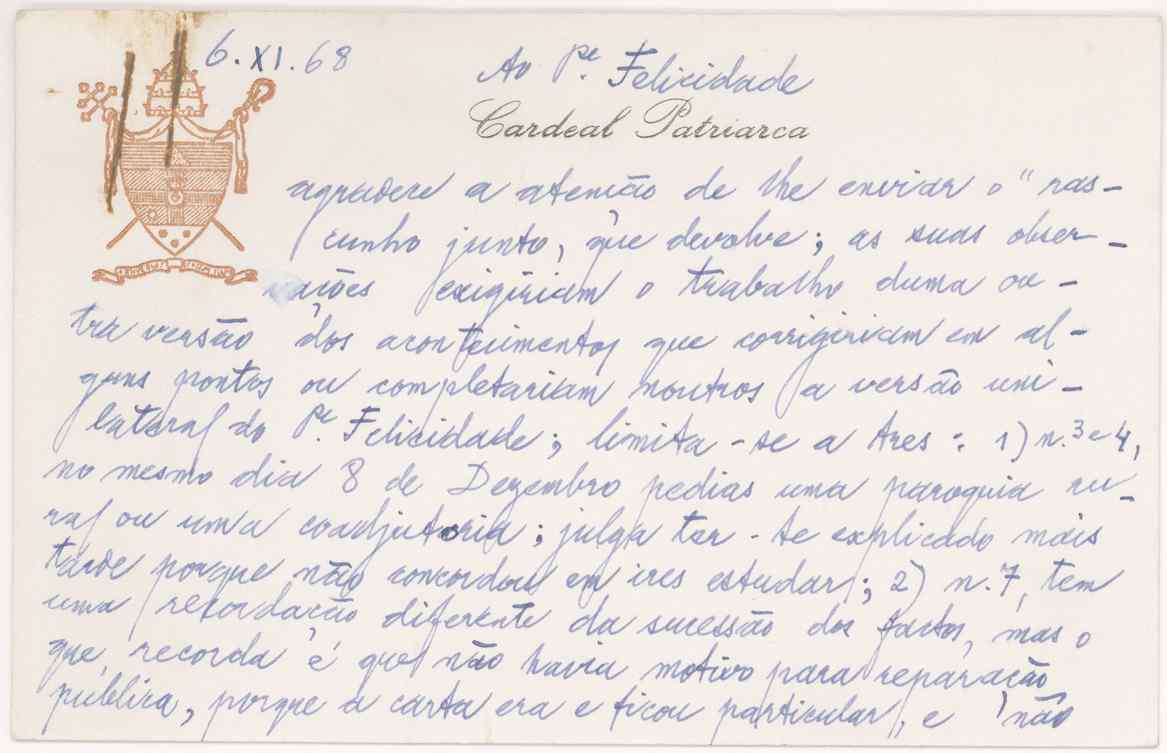 6.XI.68
Ao Pe. Felicidade
Cardeal Patriarca
agradece a atenção de lhe enviar o "ras-
cunho junto, que devolve; as suas obser-
vações exigiriam o trabalho duma ou-
tra versão dos acontecimentos que corrigiriam em al-
guns pontos ou completariam noutros a versão uni-
lateral do Pe. Felicidade; limita-se a tres: 1) n. 3 e 4,
no mesmo dia 8 de Dezembro pedias uma paroquia ru-
ral ou uma coadjutoria; julga ter-te explicado mais
tarde porque não concordou em ires estudar; 2) n. 7, tem
uma recordação diferente da sucessão dos factos, mas o
que recorda é que não havia motivo para reparação
pública, porque a carta era e ficou particular, e não